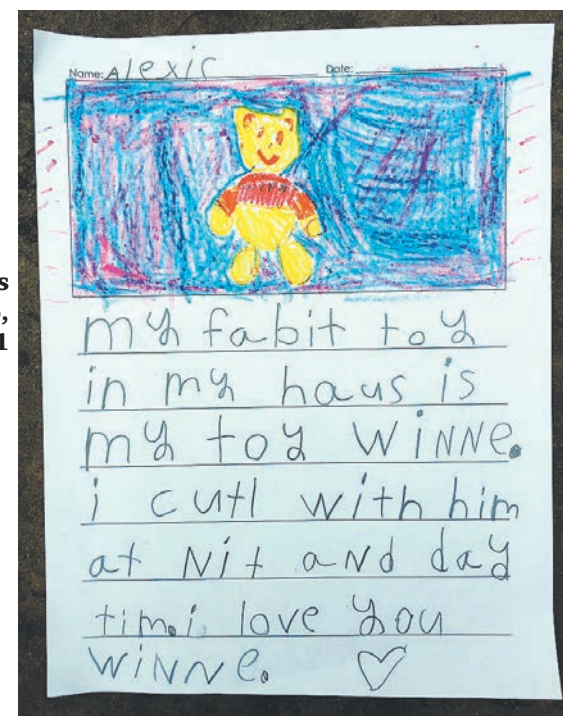 Name: Alexis Date:
s
,
1
my fabit toy
in my haus is
my toy WiNNe.
i cutl with him
at Nit aNd day
tim. i love you
WiNNe.